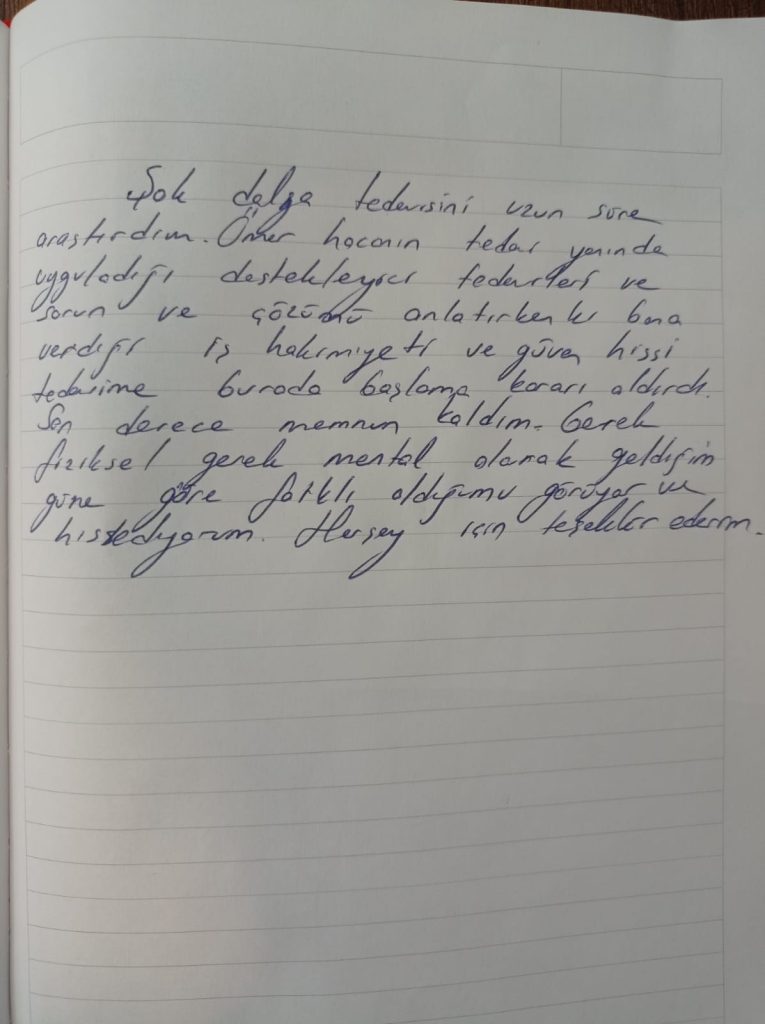 Şok dalga tedavisini uzun süre
araştırdım. Ömer hocanın tedavi yanında
uyguladığı destekleyici tedavileri ve
sorun ve çözümü anlatırkenki bana
verdiği iş hakimiyeti ve güven hissi
tedavime burada başlama kararı aldırdı.
Son derece memnun kaldım. Gerek
fiziksel gerek mental olarak geldiğim
güne göre farklı olduğumu görüyor ve
hissediyorum. Herşey için teşekkür ederim.